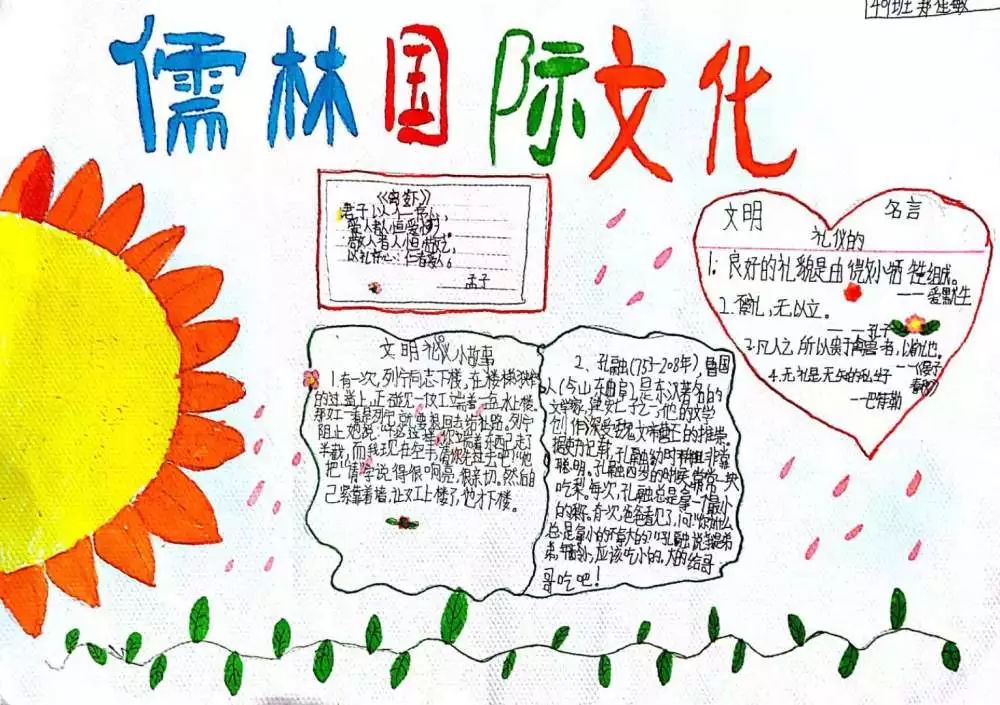 49班
儒林国际文化
《离娄》
君子以仁存心,
爱人者人恒爱之,
敬人者人恒敬之,
以礼存心:仁者爱人。
孟子
文明 名言
礼仪的
1:良好的礼貌是由微小牺牲组成。
——爱默生
2. 礼,无以立。
——孔子
3.凡人之所以贵于禽兽者,以礼也。
——《晏子
春秋》
4.无礼是无知的私生子
—巴特勒
文明礼仪小故事
1.有一次,列宁同志下楼,在楼梯狭窄
的过道上,正碰见一女工端着一盆水上楼。
那女工一看是列宁,就要退回去给让路。列宁
阻止她说:“不必这样,你端着东西已走了
半截,而我现在空手,请你先过去吧!”他
把“请”字说得很响亮,很亲切。然后自
己紧靠着墙,让女工上楼了,他才下楼。
2、孔融(153-208年),鲁国
人(今山东曲阜),是东汉著名的
文学家,建安七子之一,他的文学
创作深受魏文帝曹丕的推崇。
据史书记载,孔融幼时候非常
聪明。孔融四岁的时候,常常一块
吃梨。每次,孔融总是拿一个最小
的梨。有一次,爸爸看见了,问:“你为什么
总是拿小的不拿大的?”孔融说:“我是弟
弟,年龄小,应该吃小的,大的给哥
哥吃吧!